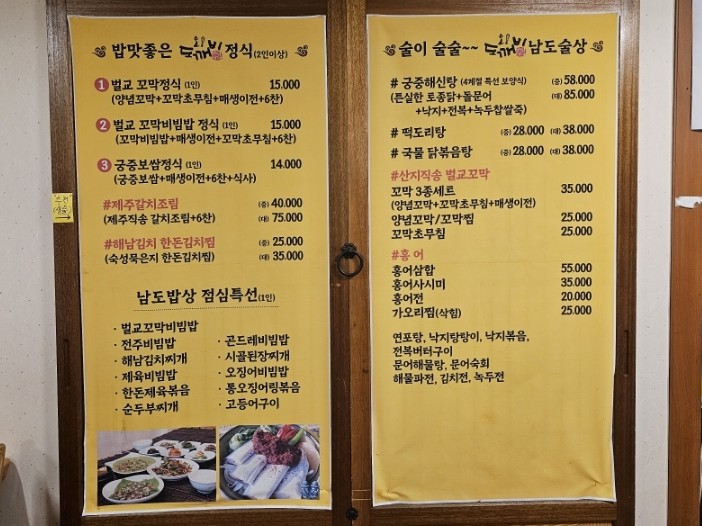 밥맛좋은 도깨빔정식(2인이상)
1 벌교 꼬막정식 (1인) 15.000
(양념꼬막+꼬막초무침+매생이전+6찬)
2 벌교 꼬막비빔밥 정식 (1인) 15.000
(꼬막비빔밥+매생이전+꼬막초무침+6찬)
3 궁중보쌈정식 (1인) 14.000
(궁중보쌈+매생이전+6찬+식사)
#제주갈치조림 (중) 40.000
(제주직송 갈치조림+6찬) (대) 75.000
#해남김치 한돈김치찜 (중) 25.000
(숙성묵은지 한돈김치찜) (대) 35.000
남도밥상 점심특선(1인)
· 벌교꼬막비빔밥
· 전주비빔밥
· 해남김치찌개
· 제육비빔밥
· 한돈제육볶음
· 순두부찌개
· 곤드레비빔밥
· 시골된장찌개
· 오징어비빔밥
· 통오징어링볶음
· 고등어구이
술이 술술~~ 도깨빔남도술상
# 궁중해신탕 (4계절 특선 보양식) (중) 58.000
(튼실한 토종닭+돌문어 (대) 85.000
+낙지+전복+녹두찹쌀죽)
# 떡도리탕 (중) 28.000 (대) 38.000
# 국물 닭볶음탕 (중) 28.000 (대) 38.000
#산지직송 벌교꼬막
꼬막 3종세트 35.000
(양념꼬막+꼬막초무침+매생이전)
양념꼬막/꼬막찜 25.000
꼬막초무침 25.000
#홍 어
홍어삼합 55.000
홍어사시미 35.000
홍어전 20.000
가오리찜(삭힘) 25.000
연포탕, 낙지탕탕이, 낙지볶음,
전복버터구이
문어해물탕, 문어숙회
해물파전, 김치전, 녹두전